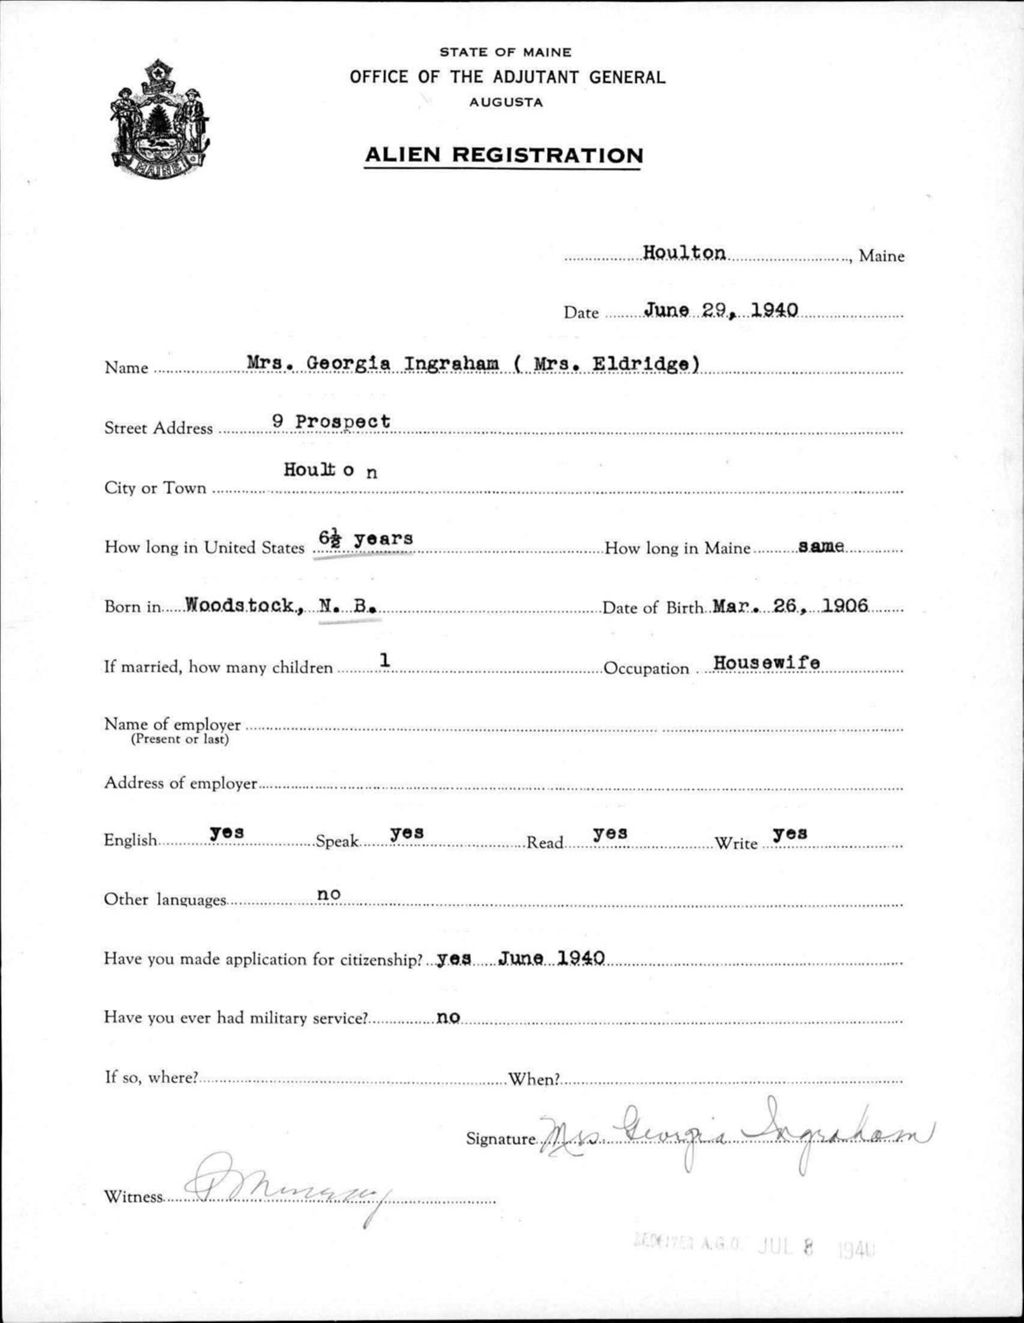 STATE OF MAINE
OFFICE OF THE ADJUTANT GENERAL
AUGUSTA
ALIEN REGISTRATION
MAINE
Houlton, Maine
Date June 29, 1940
Name Mrs. Georgia Ingraham ( Mrs. Eldridge)
Street Address 9 Prospect
City or Town Houlton
How long in United States 6½ years How long in Maine same
Born in Woodstock, N. B. Date of Birth Mar. 26, 1906
If married, how many children 1 Occupation Housewife
Name of employer
(Present or last)
Address of employer
English yes Speak yes Read yes Write yes
Other languages no
Have you made application for citizenship? yes June 1940
Have you ever had military service? no
If so, where? When?
Signature Mrs Georgia Ingraham
Witness
A.G.O. JUL 8 1940